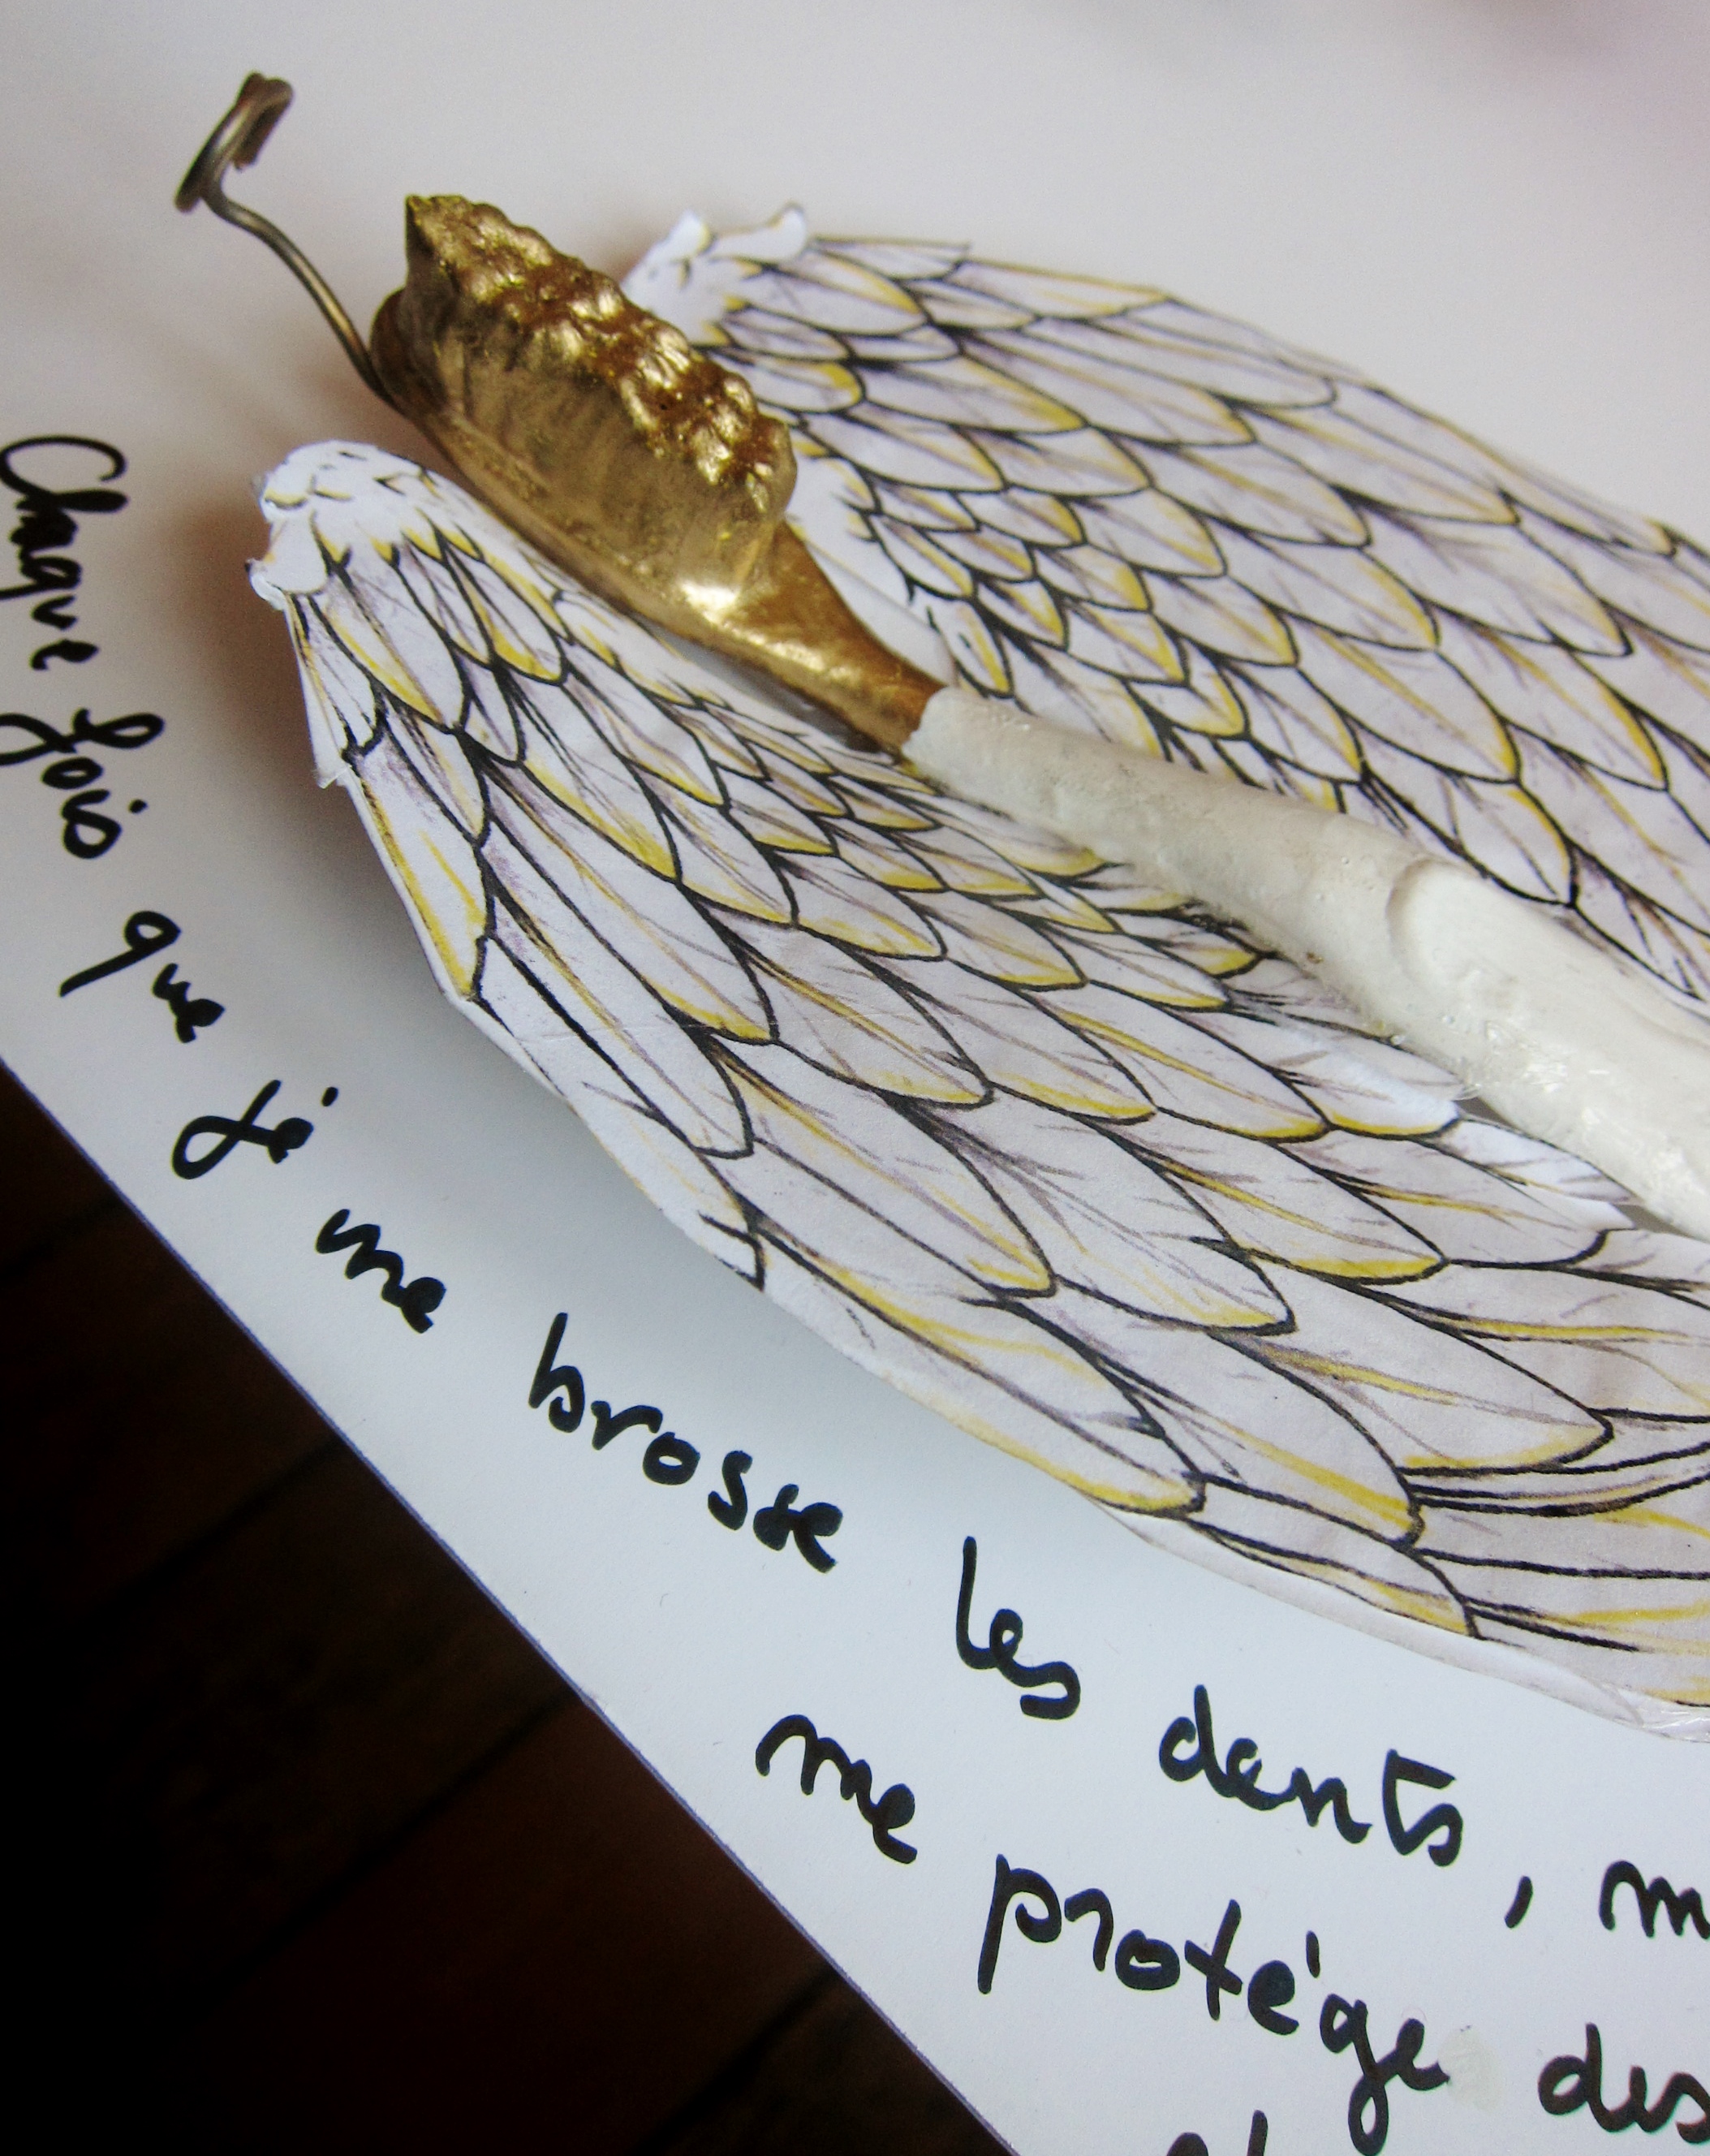 Chaque fois que je me brosse les dents, m
me protége des